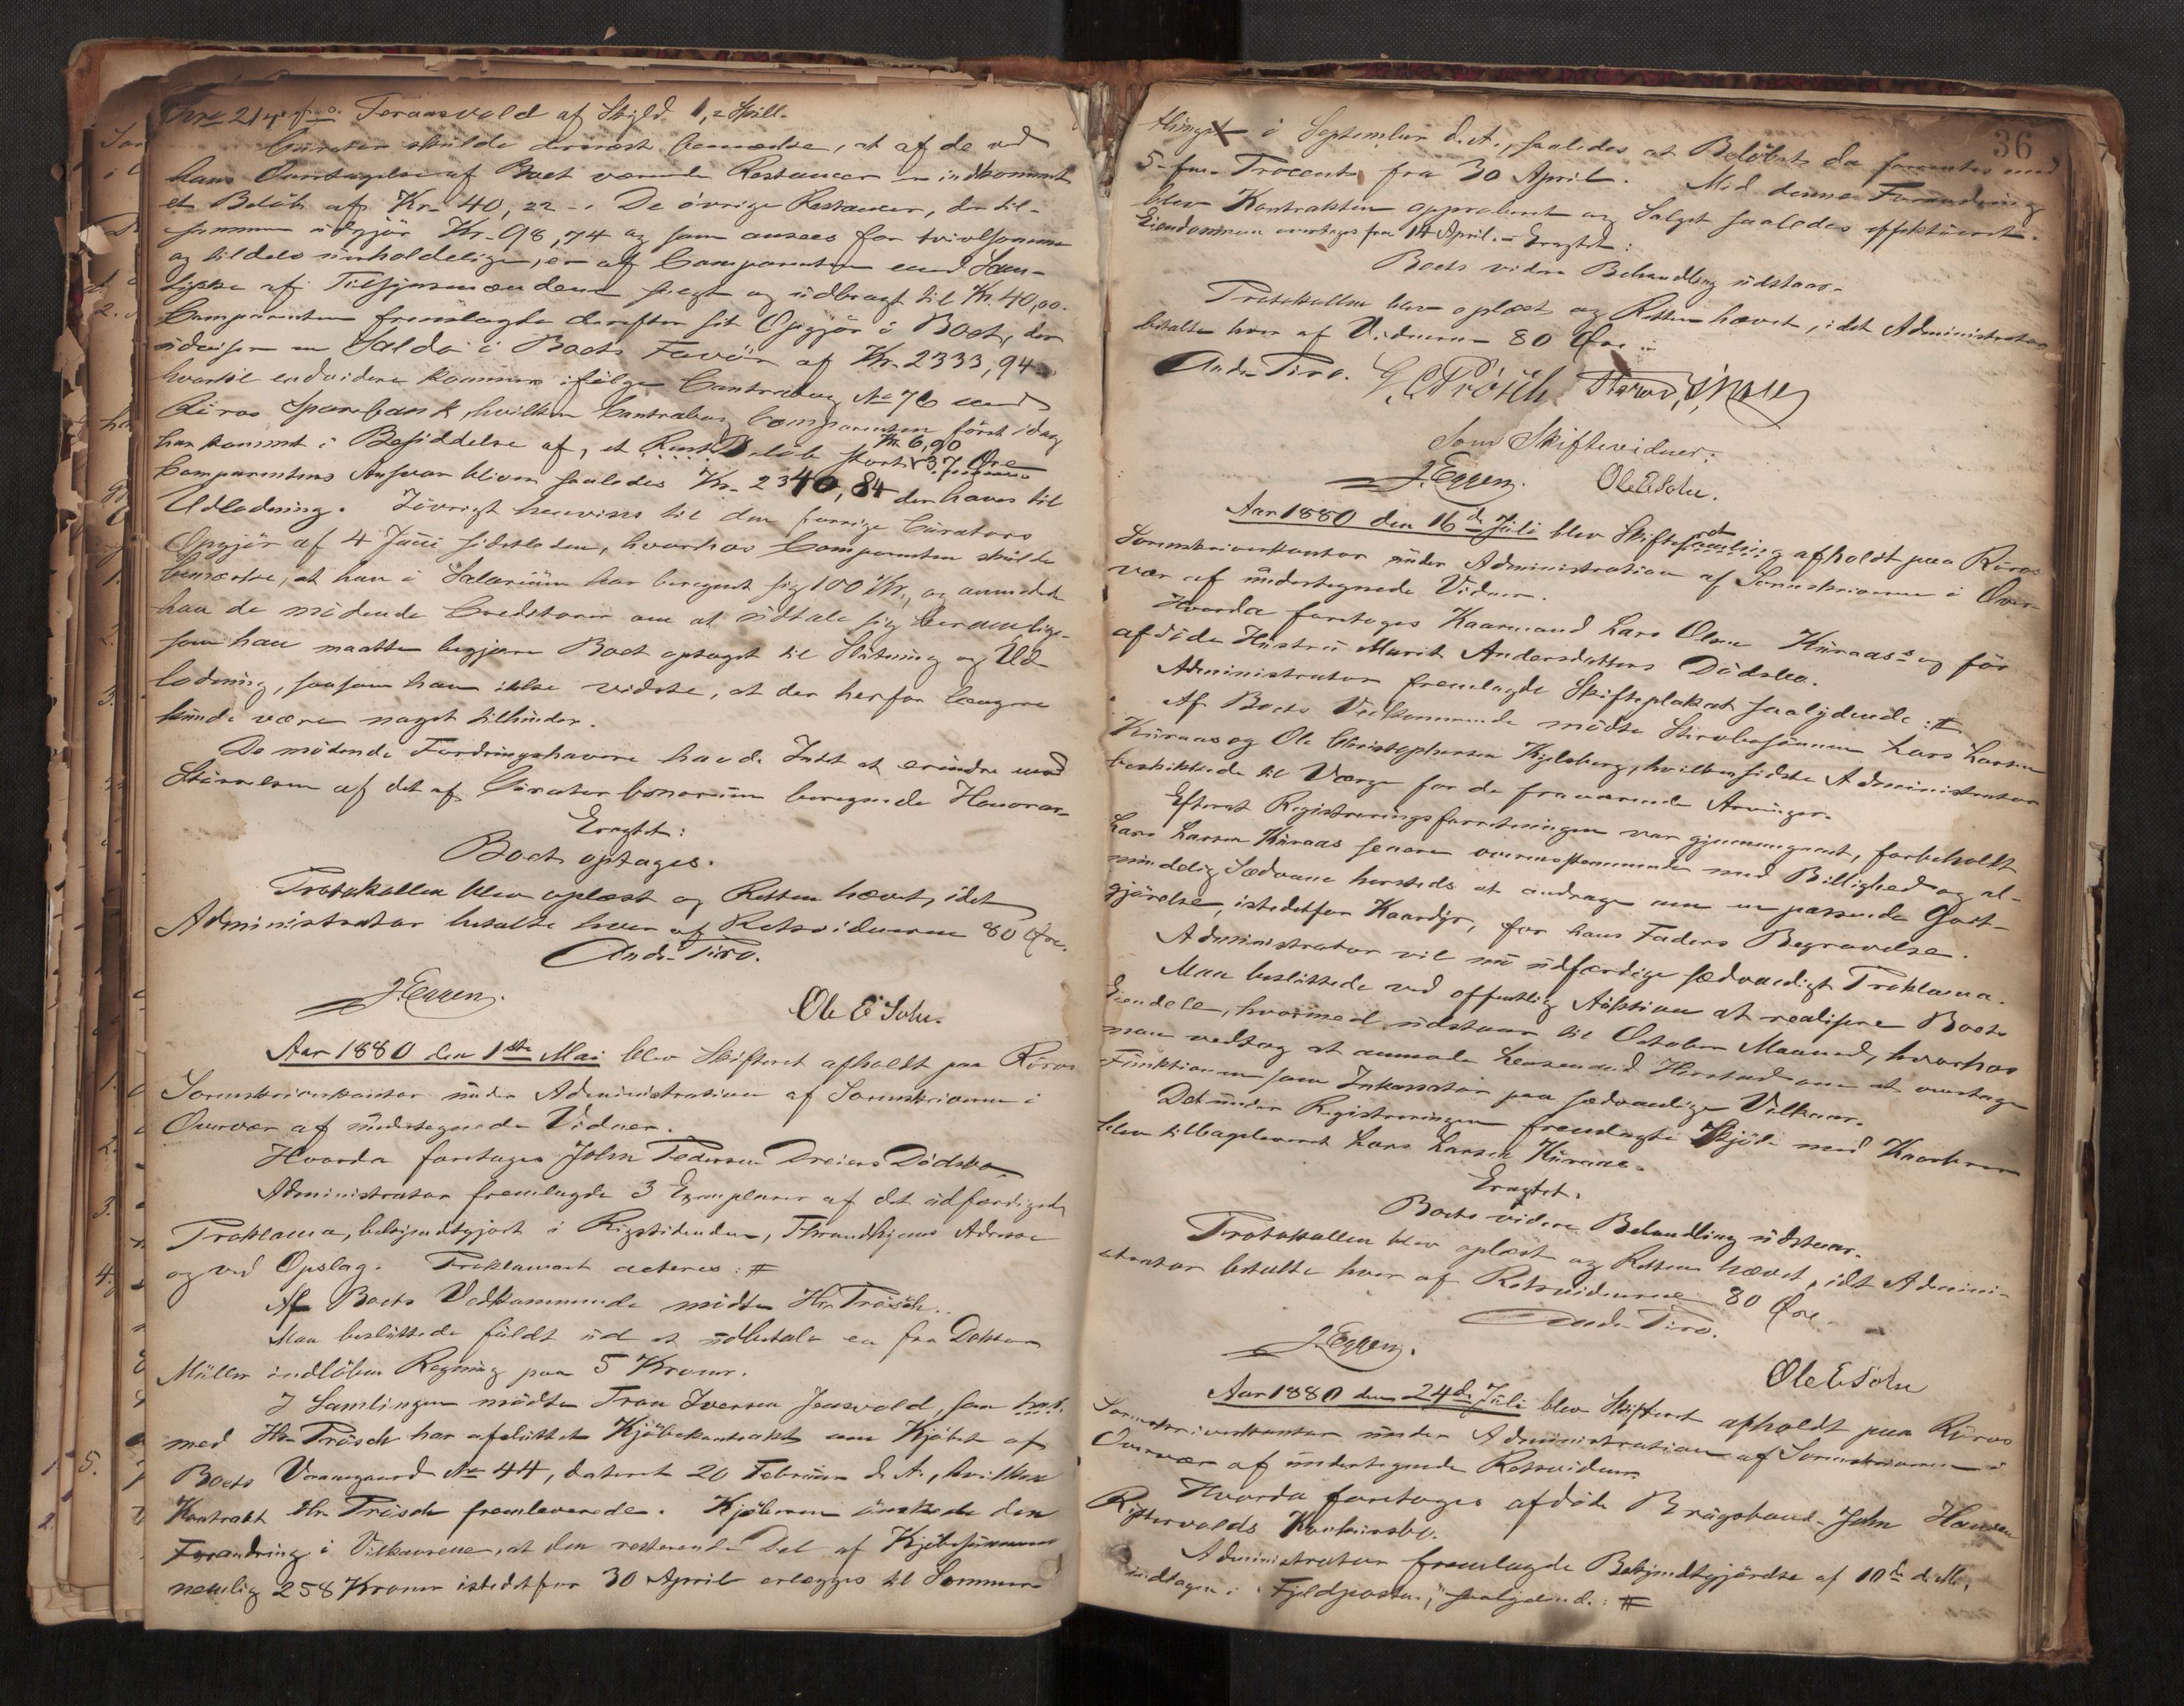 Feraasvold af Skyld 1,2 Skill.
Curator skulde dernæst bemærke, at af de ved
hans Overtagelse af Boet værende Restancer er indkommet
et Beløb af Kr. 40,22 -. De øvrige Restancer, der til-
sammen udgjør Kr. 98,74 og som ansees for tvivlsomme
og tildels uerholdelige, er af Comparenten med Sam-
tykke af Tilsynsmændene solgt og udbragt til Kr. 40,00.
Comparenten fremlagde derefter sit Opgjør i Boet, der
udviser en Saldo i Boets Favør af Kr. 2333,94
hvortil endvidere kommer ifølge Contrabog No 76 med
Røros Sparebank, hvilken Contrabog Comparenten først idag
har kommet i Besiddelse af, et Beløb stort Kr. 6,90
Comparentens Ansvar bliver saaledes Kr. 2340,84 der haves til
Udlodning. Iøvrigt henvises til den forrige Curators
Opgjør af 4 Juni sidstleden, hvorhos Comparenten skulde
bemærke, at han i Salarium har beregnet sig 100 Kr., og anmodede
han de mødende Creditorer om at udtale sig herom, lige-
som han maatte begjære Boet optaget til Slutning og Ud-
lodning, saasom han ikke vidste, at der herfor længere
kunde være noget tilhinder.
De mødende Fordringshavere havde Intet at erindre mod
Størrelsen af det af Curator bonorum beregnede Honorar.
Eragtet:
Boet optages.
Protokollen blev oplæst og Retten hævet, idet
Administrator betalte hver af Retsvidnerne 80 Øre.
Andr. Piro.
J. Eggen. Ole E Sohn.
Aar 1880 den 1ste Mai blev Skifteret afholdt paa Røros
Sorenskriverkontor under Administration af Sorenskriveren i
Overvær af undertegnede Vidner.
Hvorda foretages John Pedersen Dreiers Dødsbo.
Administrator fremlagde 3 Exemplarer af det udfærdigede
Proklama, bekjendtgjort i Rigstidenden, Throndhjems Adresse
og ved Opslag. Proklamaet acteres: #
Af Boets Vedkommende mødte Hr. Prösch.
Man besluttede fuldt ud at udbetale en fra Doktor
Müller indløben Regning paa 5 Kroner.
I Samlingen mødte Iversen Jensvold, som
med Hr. Prösch har afsluttet Kjøbekontrakt om Kjøbet af
Boets Vaaningsgaard No 44, dateret 20 Februar d. A., hvilken
Kontrakt Hr. Prösch fremleverede. Kjøberen ønskede den
Forandring i Vilkaarene, at den resterende Del af Kjøbesummen
nemlig 258 Kroner istedetfor 30 April erlægges til Sommer-
36
thinget i September d. A., saaledes at Beløbet da forrentes med
5 fem Procent fra 30 April. Med denne Forandring
blev Kontrakten approberet og Salget saaledes effektueret.
Eiendommen overtages fra 14 April. Eragtet:
Boets videre Behandling udstaar.
Protokollen blev oplæst og Retten hævet, idet Administrator
betalte hver af Vidnerne 80 Øre.
Andr. Piro. Prösch
Som Skiftevidner:
J. Eggen. Ole E Sohn.
Aar 1880 den 16de Juli blev Skiftesamling afholdt paa Røros
Sorenskriverkontor under Administration af Sorenskriveren i Over-
vær af undertegnede Vidner.
Hvorda foretages Kaarmand Lars Olsen Kuraas's og før
afdøde Hustru Marit Andersdatters Dødsbo.
Administrator fremlagde Skifteplakat saalydende: #
Af Boets Vedkommende mødte Stervbosønnen Lars Larsen
Kuraas og Ole Christophersen Kjelsberg, hvilken sidste Administrator
beskikkede til Værge for de fraværende Arvinger.
Efterat Registreringsforretningen var gjennemgaaet, forbeholdt
Lars Larsen Kuraas senere overensstemmende med Billighed og al-
mindelig Sædvane hersteds at andrage om en passende Godt-
gjørelse, istedetfor Kaardyr, for hans Faders Begravelse.
Administrator vil nu udfærdige sædvanligt Proklama.
Man besluttede ved offentlig Auktion at realisere Boets
Eiendele, hvormed udstaar til October Maaned, hvorhos
man vedtog at anmode Lensmand Herstad om at overtage
Funktionen som Inkassator paa sædvanlige Vilkaar.
Det under Registreringen fremlagte Skjøde med Kaarbrev
blev tilbageleveret Lars Larsen Kuraas.
Eragtet.
Boets videre Behandling udstaar.
Protokollen blev oplæst og Retten hævet, idet Admini-
strator betalte hver af Retsvidnerne 80 Øre.
Andr. Piro.
J. Eggen. Ole E Sohn
Aar 1880 den 24de Juli blev Skifteret afholdt paa Røros
Sorenskriverkontor under Administration af Sorenskriveren i
Overvær af undertegnede Retsvidner.
Hvorda foretages afdøde Brugsbund. John Hansen
Konkursbo.
Administrator fremlagde Bekjendtgjørelse af 10de d. M.,
indtagen i "Fjeldposten", saalydende: #